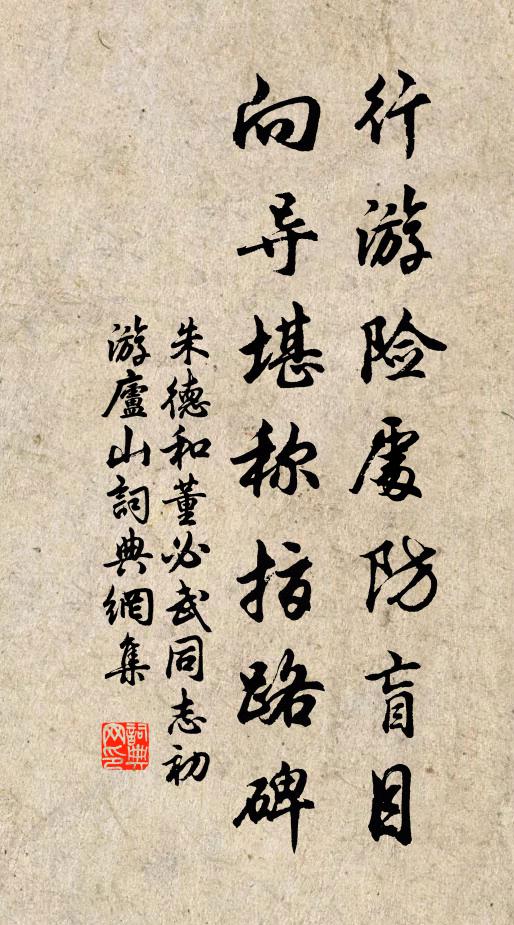 行游险處防盲目
向导堪称指路碑
朱德和董必武同志初
游廬山詞典網集
詞典
网印